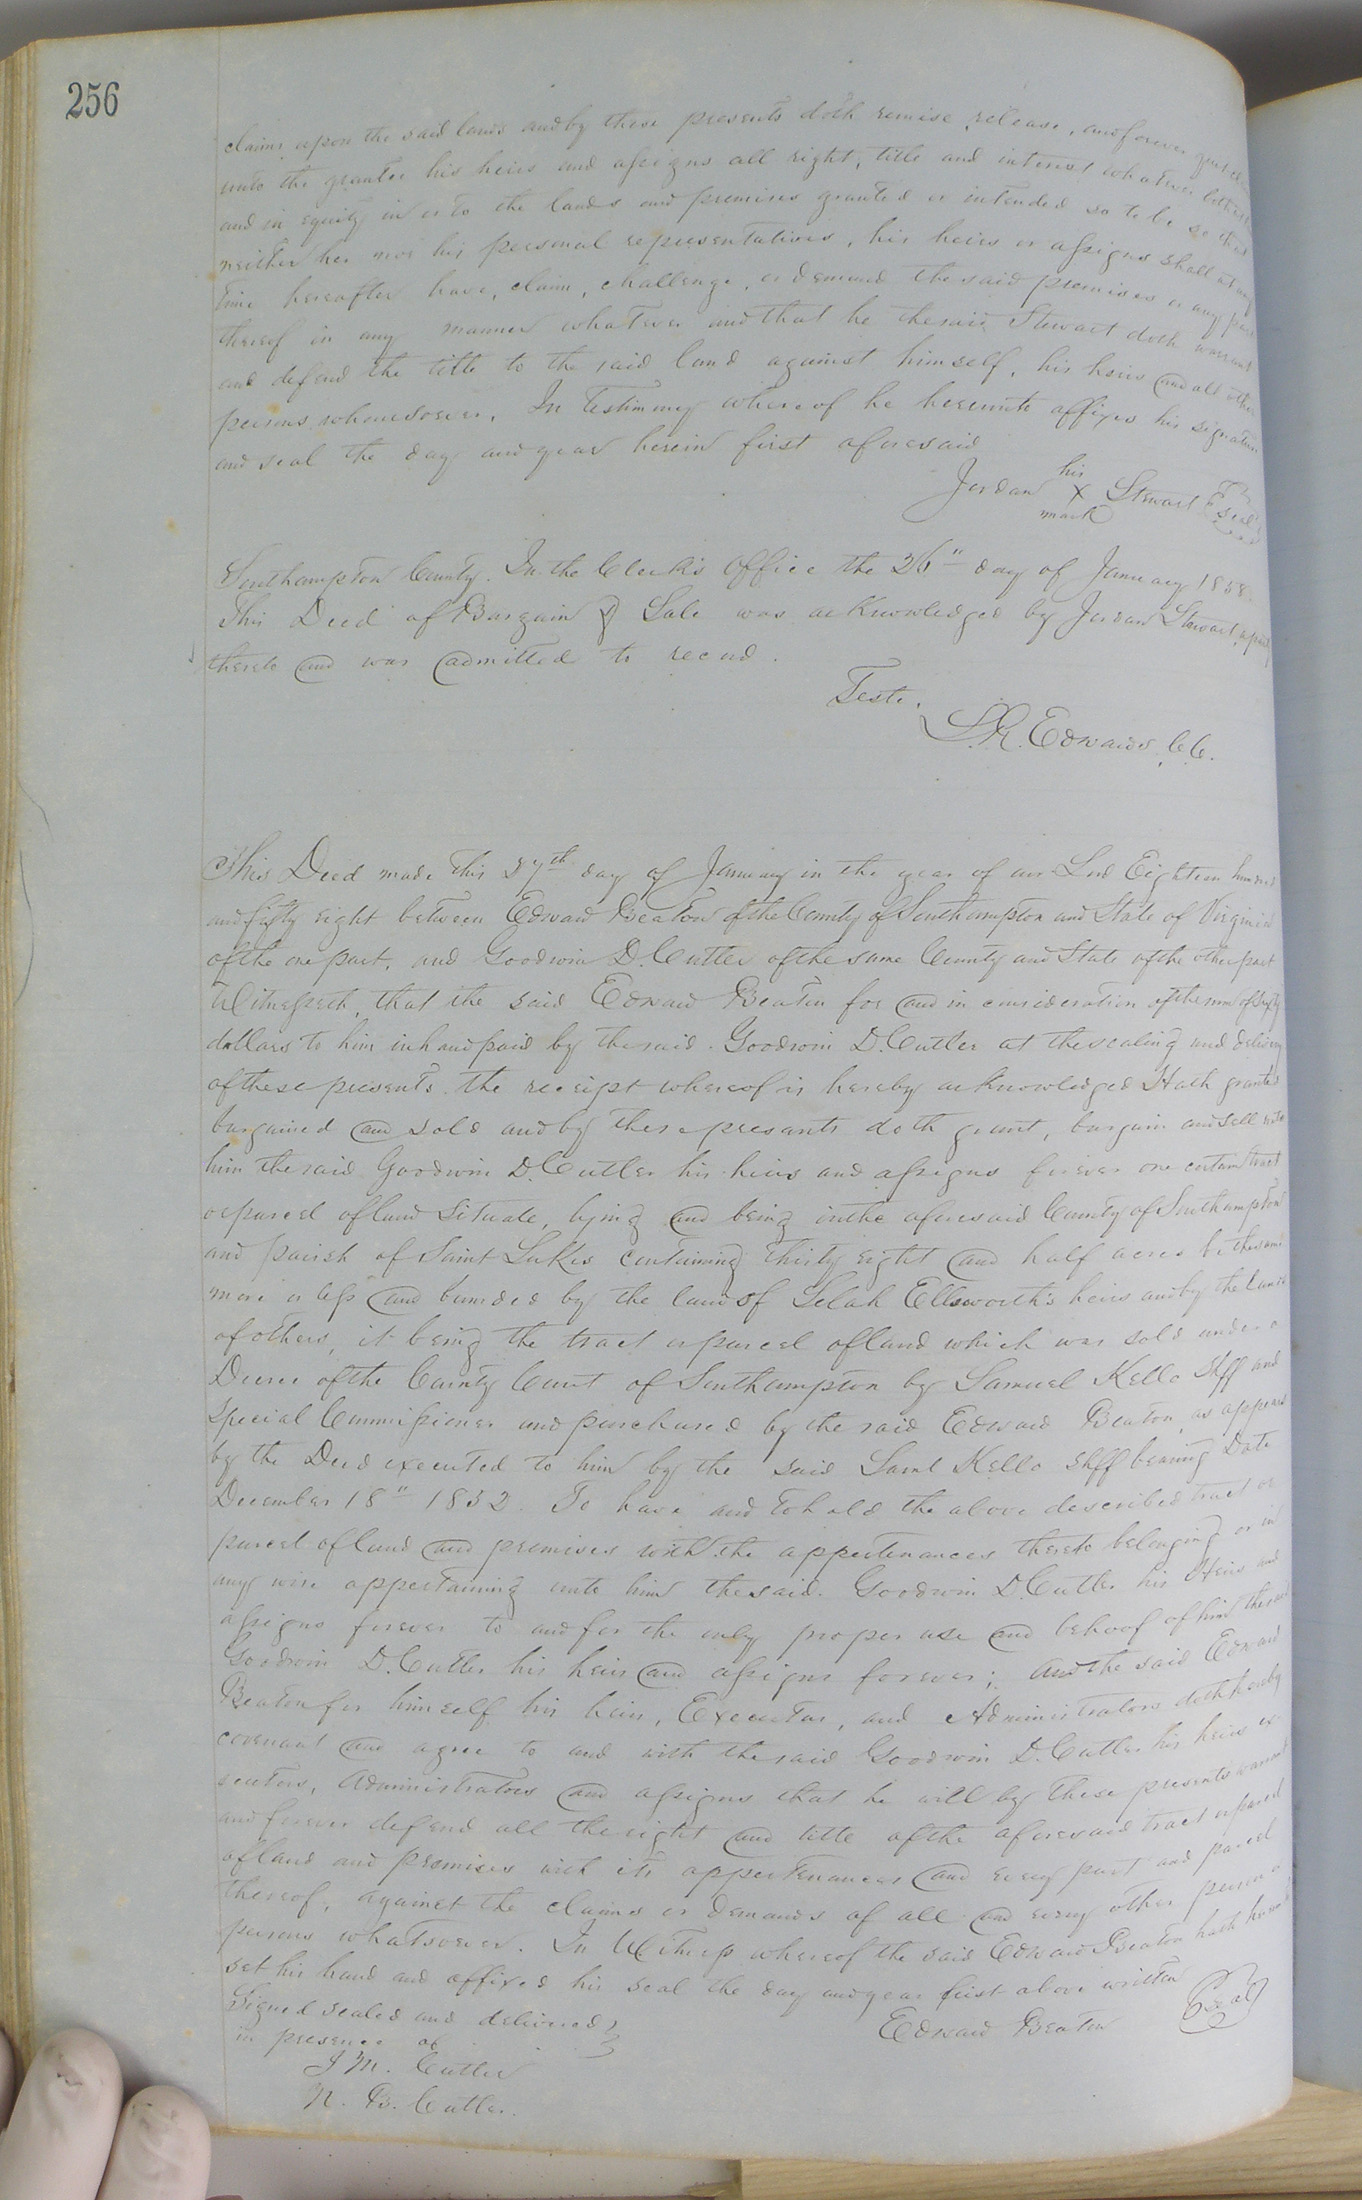 256
claims upon the said lands and by these presents doth remise, release, and forever quit claim
unto the grantee his heirs and assigns all right, title and interest whatever both at law
and in equity in or to the lands and premises granted or intended so to be so that
neither he nor his personal representatives, his heirs or assigns shall at any
time hereafter have, claim, challenge, or demand the said premises or any part
thereof in any manner whatever and that he the said Stewart doth warrant
and defend the title to the said land against himself, his heirs and all other
persons whomsoever. In Testimony whereof he hereunto affixes his signature
and seal the day and year herein first aforesaid
his
Jordan X Stewart Seal
mark
Southampton County. In the Clerk's Office the 26" day of January 1858.
This Deed of Bargain & Sale was acknowledged by Jordan Stewart, a party
thereto and was admitted to record.
Teste.
L.R. Edwards, C.C.
This Deed made this 27th day of January in the year of our Lord Eighteen hundred
and fifty eight between Edward Beaton of the County of Southampton and State of Virginia
of the one part, and Goodwin D. Cutler of the same County and State of the other part
Witnesseth, that the said Edward Beaton for and in consideration of the sum of
dollars to him in hand paid by the said Goodwin D. Cutler at the sealing and delivery
of these presents the receipt whereof is hereby acknowledged Hath granted
bargained and sold and by these presants doth grant, bargain and sell unto
him the said Goodwin D. Cutler his heirs and assigns forever one certain tract
or parcel of land situate, lying and being in the aforesaid County of Southampton
and parish of Saint Lukes containing thirty eight and half acres be the same
more or less and bounded by the land of Selah Ellsworth's heirs and by the lands
of others, it being the tract or parcel of land which was sold under a
Decree of the County Court of Southampton by Samuel Kello Shff and
special Commissioner and purchased by the said Edward Beaton, as appears
by the Deed executed to him by the said Saml Kello Shff bearing Date
December 18" 1832. To have and to hold the above described tract or
parcel of land and premises with the appertenances thereto belonging or in
any wise appertaining unto him the said Goodwin D. Cutler his Heirs and
assigns forever to and for the only proper use and behoof of him the said
Goodwin D. Cutler his heirs and assigns forever; And the said Edward
Beaton for himself his heirs, Executors, and Administrators doth hereby
covenant and agree to and with the said Goodwin D. Cutler his heirs ex-
ecutors, Administrators and assigns that he will by these presents warrant
and forever defend all the right and title of the aforesaid tract or parcel
of land and premises with its appertenances and every part and parcel
thereof, against the claims or demands of all and every other person or
persons whatsoever. In Witness whereof the said Edward Beaton hath hereunto
set his hand and affixed his seal the day and year first above written
Signed sealed and delivered }
in presence of
Edward Beaton Seal
J M. Cutler
N. B. Cutler.